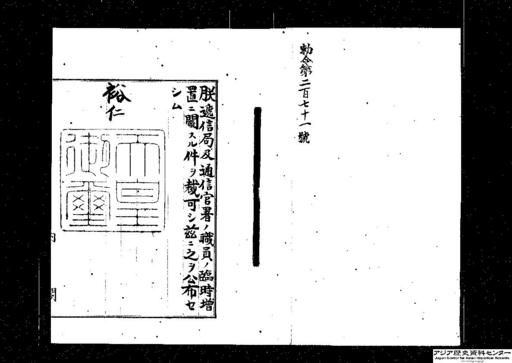 勅令第二百七十一號
朕遞信局及通信官署ノ職員ノ臨時増
置ニ關スル件ヲ裁可シ茲ニ之ヲ公布セ
シム
裕仁
天皇
御璽
内閣
アジア歴史資料センター
Japan Center for Asian Historical Records